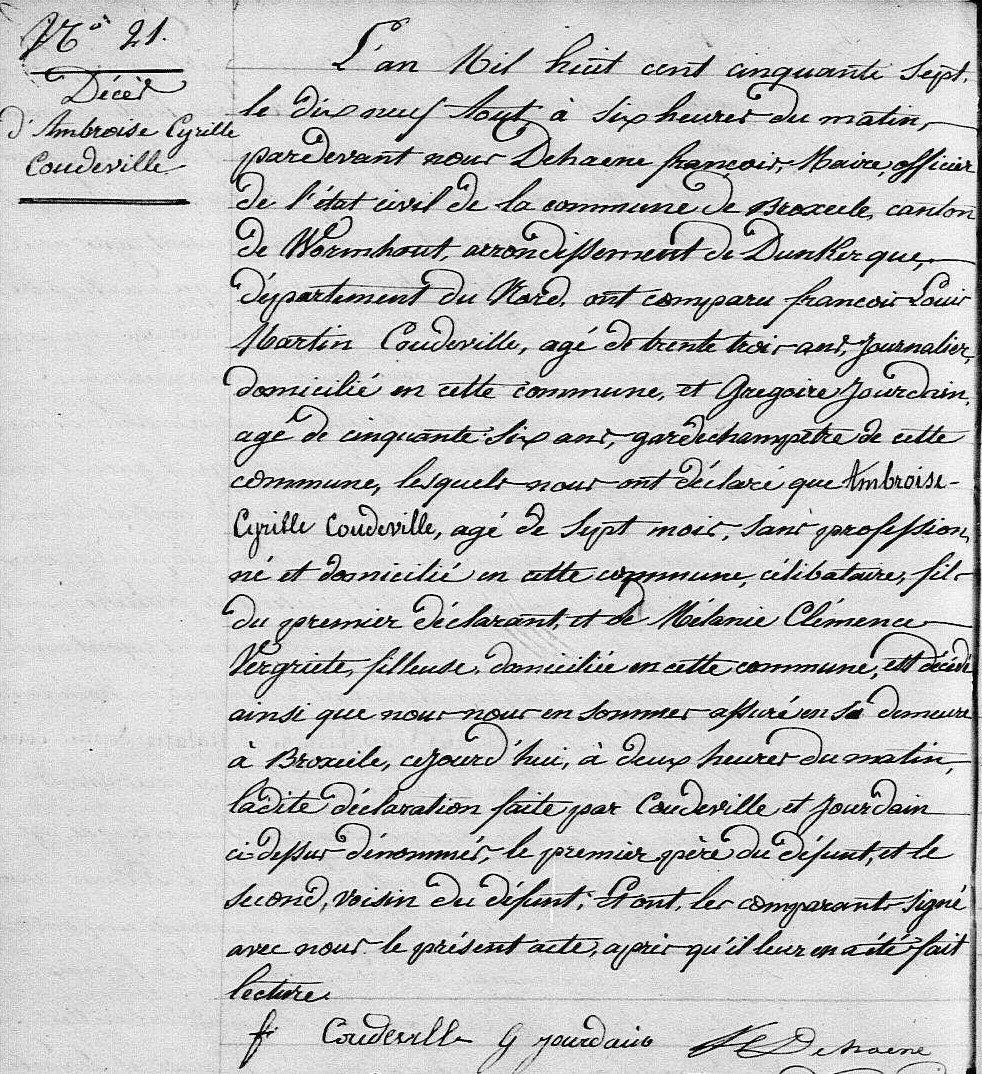 N° 21.
Décès
d'Ambroise Cyrille
Coudeville
L'an Mil huit cent cinquante sept,
le dix neuf Aout à six heures du matin,
pardevant nous Dehaene françois, Maire, officier
de l'état civil de la commune de Broxeele, canton
de Wormhout, arrondissement de Dunkerque,
département du Nord, ont comparu francois Louis
Martin Coudeville, agé de trente trois ans, Journalier,
domicilié en cette commune, et Gregoire Jourdain,
agé de cinquante-six ans, gardechampetre de cette
commune, lesquels nous ont déclaré que Ambroise-
Cyrille Coudeville, agé de sept mois, sans profession,
né et domicilié en cette commune, célibataire, fils
du premier déclarant, et de Mélanie Clémence
Vergriete, filleuse, domiciliée en cette commune, est décédé
ainsi que nous nous en sommes assuré en sa demeure
à Broxeele, cejourd'hui, à deux heures du matin,
ladite déclaration faite par Coudeville et Jourdain
ci-dessus dénommés, le premier père du défunt, et le
second, voisin du défunt; Et ont, les comparants signé
avec nous le présent acte, après qu'il leur en a été fait
lecture.
f Coudeville G jourdain Dehaene